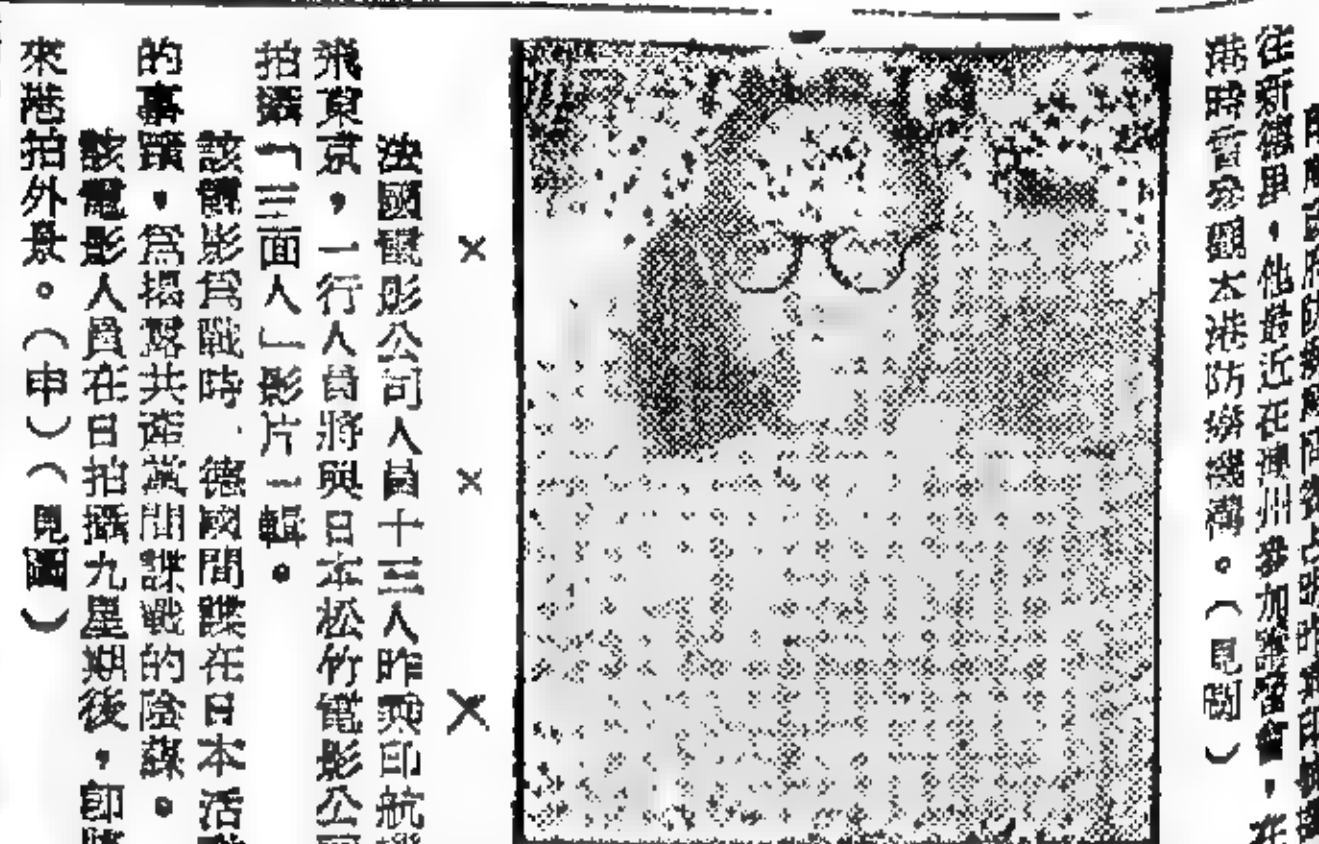 往新德里,他最近在澳州參加議會,在
港時曾參觀本港防癆機構。(見圖)
× × ×
法國電影公司人員十三人昨乘印航機
飛東京,一行人員將與日本松竹電影公司
拍攝「三面人」影片一輯。
該電影為戰時,德國間諜在日本活動
的事蹟,為揭露共產黨間諜戰的陰謀。
該電影人員在日拍攝九星期後,卽將
來港拍外景。(申)(見圖)